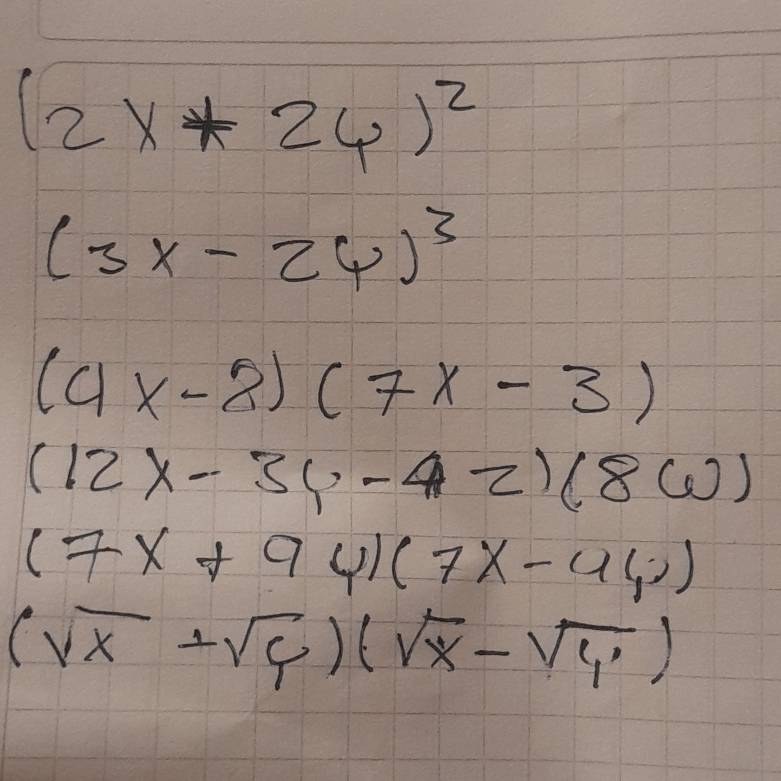 (2x * 2y)²
(3x - 2y)³
(9x - 8)(7x - 3)
(12x - 3y - 4z)(8w)
(7x + 9y)(7x - 9y)
(√x + √y)(√x - √y)